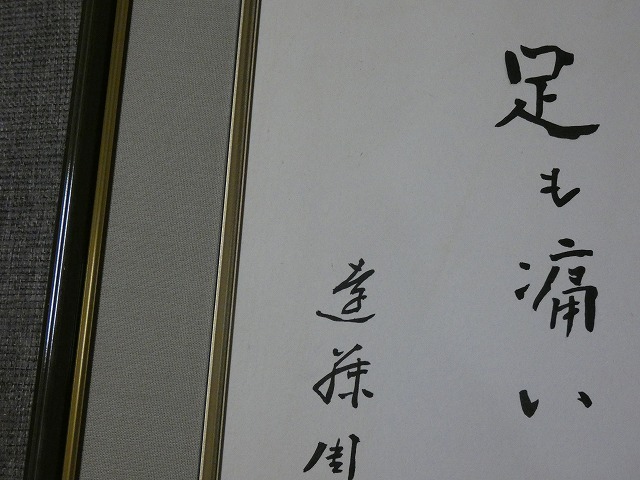 足も痛い
遠藤周